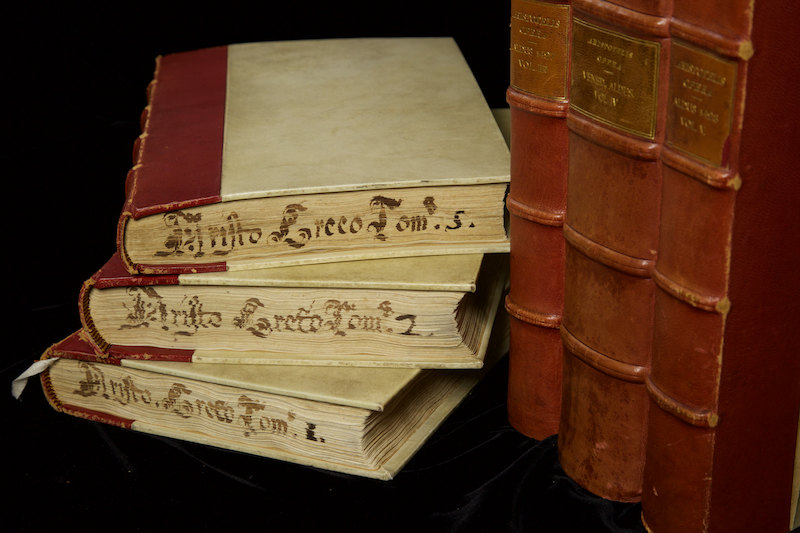 Aristo Greco Tom⁹. 5.
Aristo Greco Tom⁹. 2
Aristo. Greco Tom⁹. 1.
ARISTOTELIS
OPERA
VOL.
ARISTOTELIS
OPERA
VENET. ALDUS
VOL. IV
ARISTOTELIS
OPERA
VOL. V.